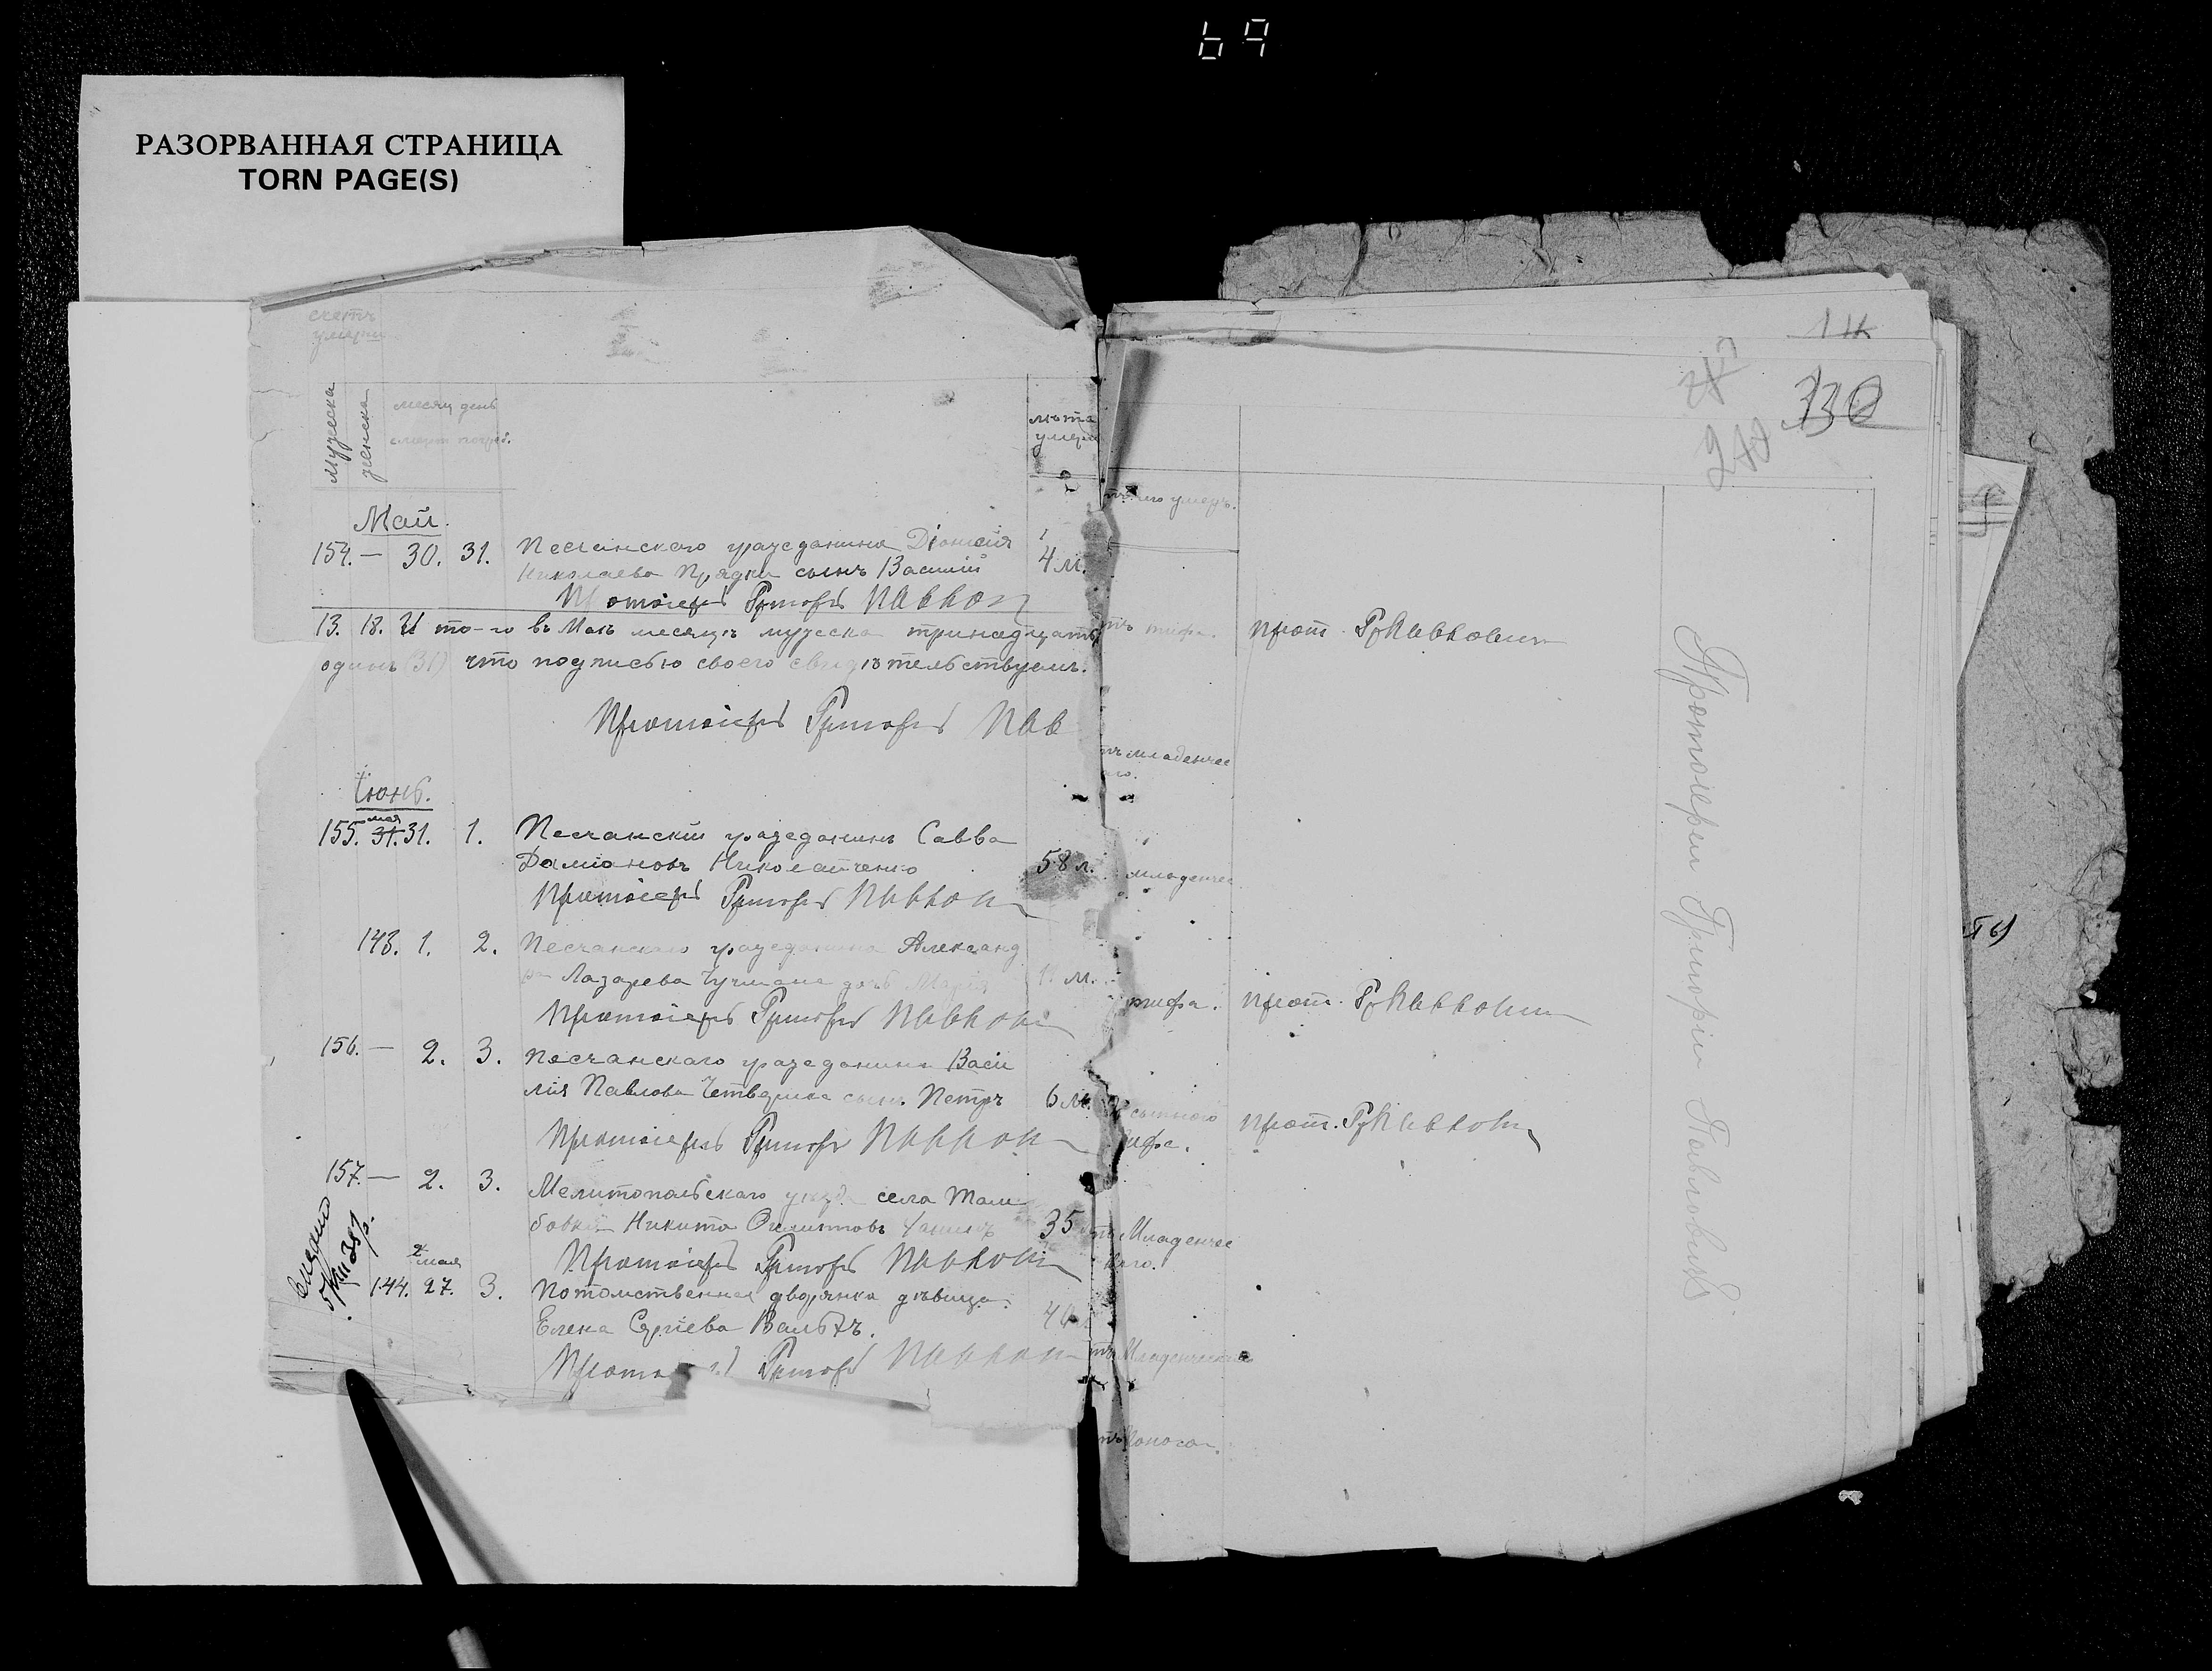 69
РАЗОРВАННАЯ СТРАНИЦА
TORN PAGE(S)
счетъ
умерш
Мужеска
женска
месяц день
смерт погреб.
лѣта
умерш
Май.
154. — 30. 31. Песчанского гражданина Діонисія
Николаева Прядки сынъ Василій
1
4 м.
Протоіерей Григорій Павлов
13. 18. И то-го въ Маѣ месяцѣ мужеска тринадцать
одинъ (31) что подписью своего свидѣтельствуемъ.
Протоіерей Григорій Пав
Іюнь.
мая
155. 31. 31. 1. Песчанскій гражданинъ Савва
Даміановъ Николайченко
58 л.
Протоіерей Григорій Павлов
143. 1. 2. Песчанскаго гражданина Александ
ра Лазарева дочь Марія
11 м.
Протоіерей Григорій Павлов
156. — 2. 3. Песчанскаго гражданина Васи
лія Павлова сынъ Петръ
6 м.
Протоіерей Григорій Павлов
157. — 2. 3. Мелитопольскаго уѣзда села Там
бовки Никита
35
Протоіерей Григорій Павлов
мая
144. 27. 3. Потомственная дворянка дѣвица
Елена Сергіева
40
Протоіерей Григорій Павлов
114
240
330
чего умеръ.
тъ тифа.
прот. Гр Павлович
тъ младенчес
аго.
младенчес
тифа.
прот. Гр Павлович
сыпного
тифа.
прот. Гр Павлович
Младенчес
каго.
тъ Младенческаго
Протоіерей Григорій Павлович